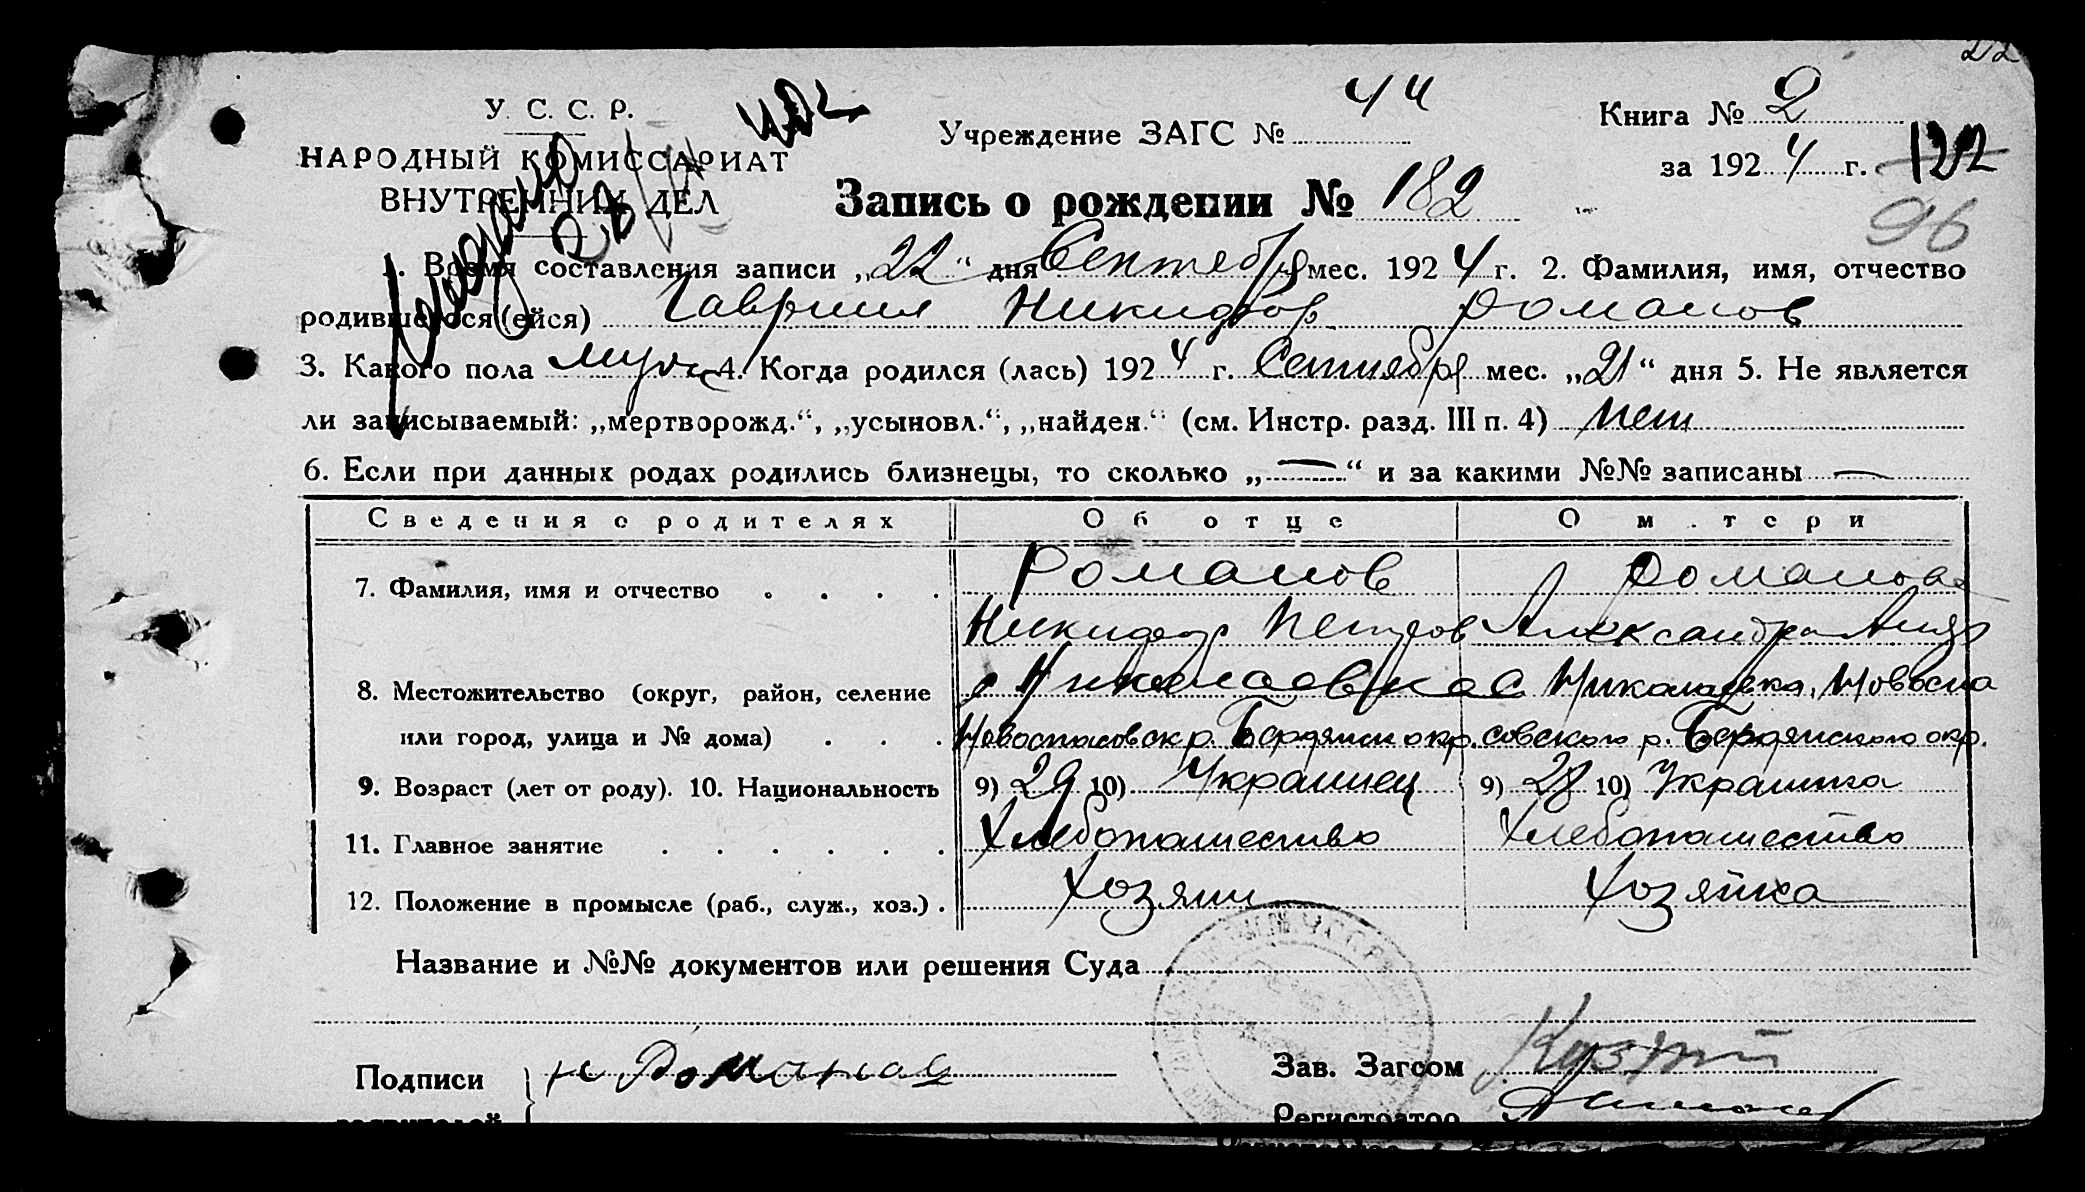 22
У. С. С. Р.
НАРОДНЫЙ КОМИССАРИАТ
ВНУТРЕННИХ ДЕЛ
Учреждение ЗАГС № 44
Книга № 2
за 1924 г. 122
96
Запись о рождении № 182
1. Время составления записи „22“ дня Сентября мес. 1924 г. 2. Фамилия, имя, отчество
родившегося (ейся) Гавриил Никифор Романов
3. Какого пола муж 4. Когда родился (лась) 1924 г. Сентября мес. „21“ дня 5. Не является
ли записываемый: „мертворожд.“, „усыновл.“, „найден.“ (см. Инстр. разд. III п. 4) Нет
6. Если при данных родах родились близнецы, то сколько „—“ и за какими №№ записаны —
Сведения о родителях Об отце О м.тери
7. Фамилия, имя и отчество . . . . Романов Романова
Никифор Петров Александра Андр
8. Местожительство (округ, район, селение с Николаевка с Николаевка, Новоспа
или город, улица и № дома) . . . Новоспасовск р. Бердянск окр. совского р. Бердянского окр.
9. Возраст (лет от роду). 10. Национальность 9) 29 10) Украинец 9) 28 10) Украинка
11. Главное занятие . . . . . . Хлебопашество Хлебопашество
12. Положение в промысле (раб., служ., хоз.) . Хозяин Хозяйка
Название и №№ документов или решения Суда
Подписи Н Романов Зав. Загсом
заявителей Регистратор